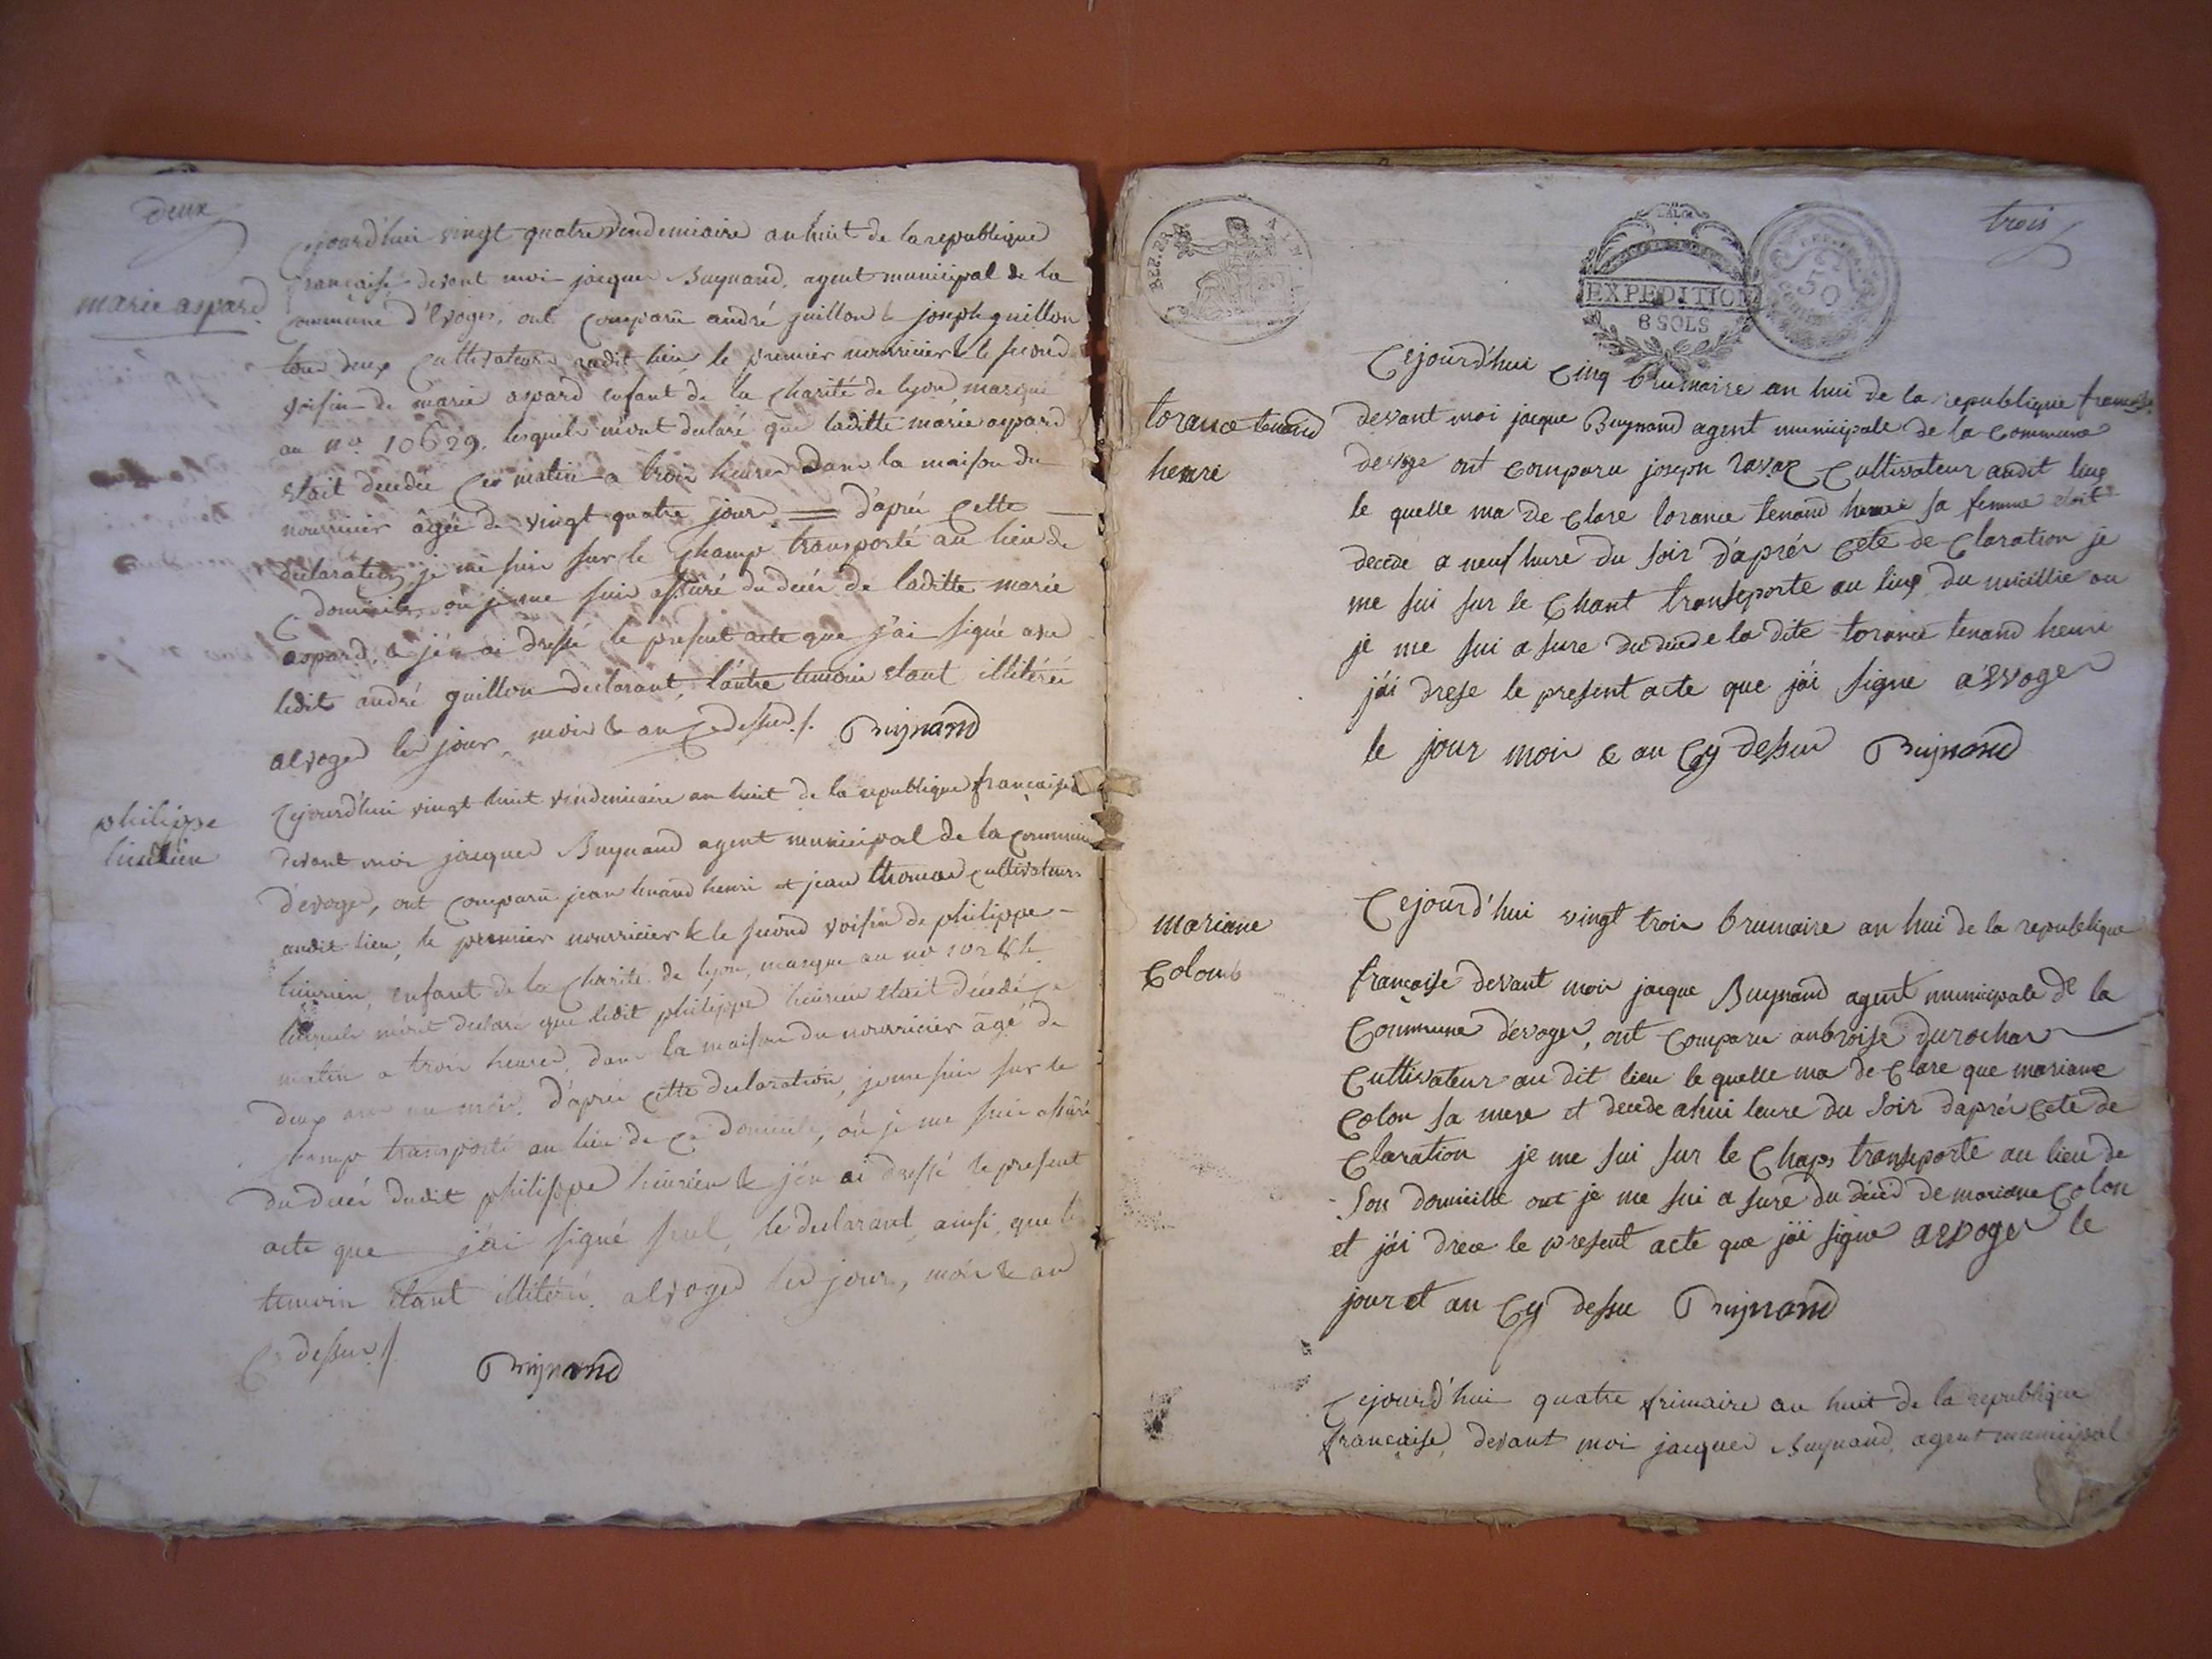 deux
marie aspard
Cejourd'hui vingt quatre vendemiaire an huit de la republique
francaise devant moi jacque Buynand, agent municipal de la
commune d'Evoges, ont comparü andré guillon & joseph guillon
tous deux cultivateurs audit lieu le premier nourricier & le second
voisin de marie aspard enfant de la charité de lyon marque
au no. 10629. lesquels m'ont declaré que laditte marie aspard
etait decedée ce matin a trois heures dans la maison du
nourricier âgée de vingt quatre jours = d'après cette
declaration, je me suis sur le champ transporté au lieu de
domicile, où je me suis assuré du decés de laditte marie
aspard, & j'en ai dressé le present acte que j'ai signé avec
ledit andré guillon declarant, l'autre temoin etant illitéré
a Evoges les jour, mois & an ce dessus /. Buynand
philippe
Cejourd'hui vingt huit vendemiaire an huit de la republique française
devant moi jacques Buynand agent municipal de la commune
d'evoges, ont comparü jean tenand henri et jean thomas cultivateurs
audit lieu, le premier nourricier & le second voisin de philippe
enfant de la charité de lyon, marque au no
lesquels m'ont declaré que ledit philippe etait décédé ce
matin a trois heures, dans la maison du nourricier âgé de
deux ans un mois. d'après cette declaration, je me suis sur le
champ transporté au lieu de ce domicile, où je me suis assuré
du decés dudit philippe & j'en ai dressé le present
acte que j'ai signé seul, le declarant ainsi que le
temoin etant illitéré. a Evoges les jour, mois & an
ce dessus /.
Buynand
BER.ER AIN
LA LOI
EXPEDITION
6 SOLS
50
trois
lorance tenand
henri
Cejourd'hui cinq brumaire an hui de la republique francaise
devant moi jacque Buynand agent municipale de la commune
devoge ont comparu joseph ravaz cultivateur audit lieu
le quelle ma de clare lorance tenand henri sa femme etoit
decede a neuf hure du soir d'aprér cete de claration je
me sui sur le chant transporte au lieu du micillie ou
je me sui a sure du deced e la dite lorance tenand henri
j'ái drese le present acte que j'ái signe a'Evoger
le jour moir & an cy dessus Buynand
mariane
Colomb
Cejourd'hui vingt troir brumaire an hui de la republique
française devant moi jacque Buynand agent municipale de la
commune d'évoges, ont comparu anbroise durochar
cultivateur au dit lieu le quelle ma de clare que mariane
colon sa mere et decede ahui leure du soir d'aprér cete de
claration je me sui sur le chaps transporte au lieu de
son domicille out je me sui a sure du déced de mariane colon
et j'ái drece le present acte que j'ái signe aevoger le
jour et an cy dessu Buynand
Cejourd'hui quatre frimaire an huit de la republique
francaise, devant moi jacques Buynand, agent municipal